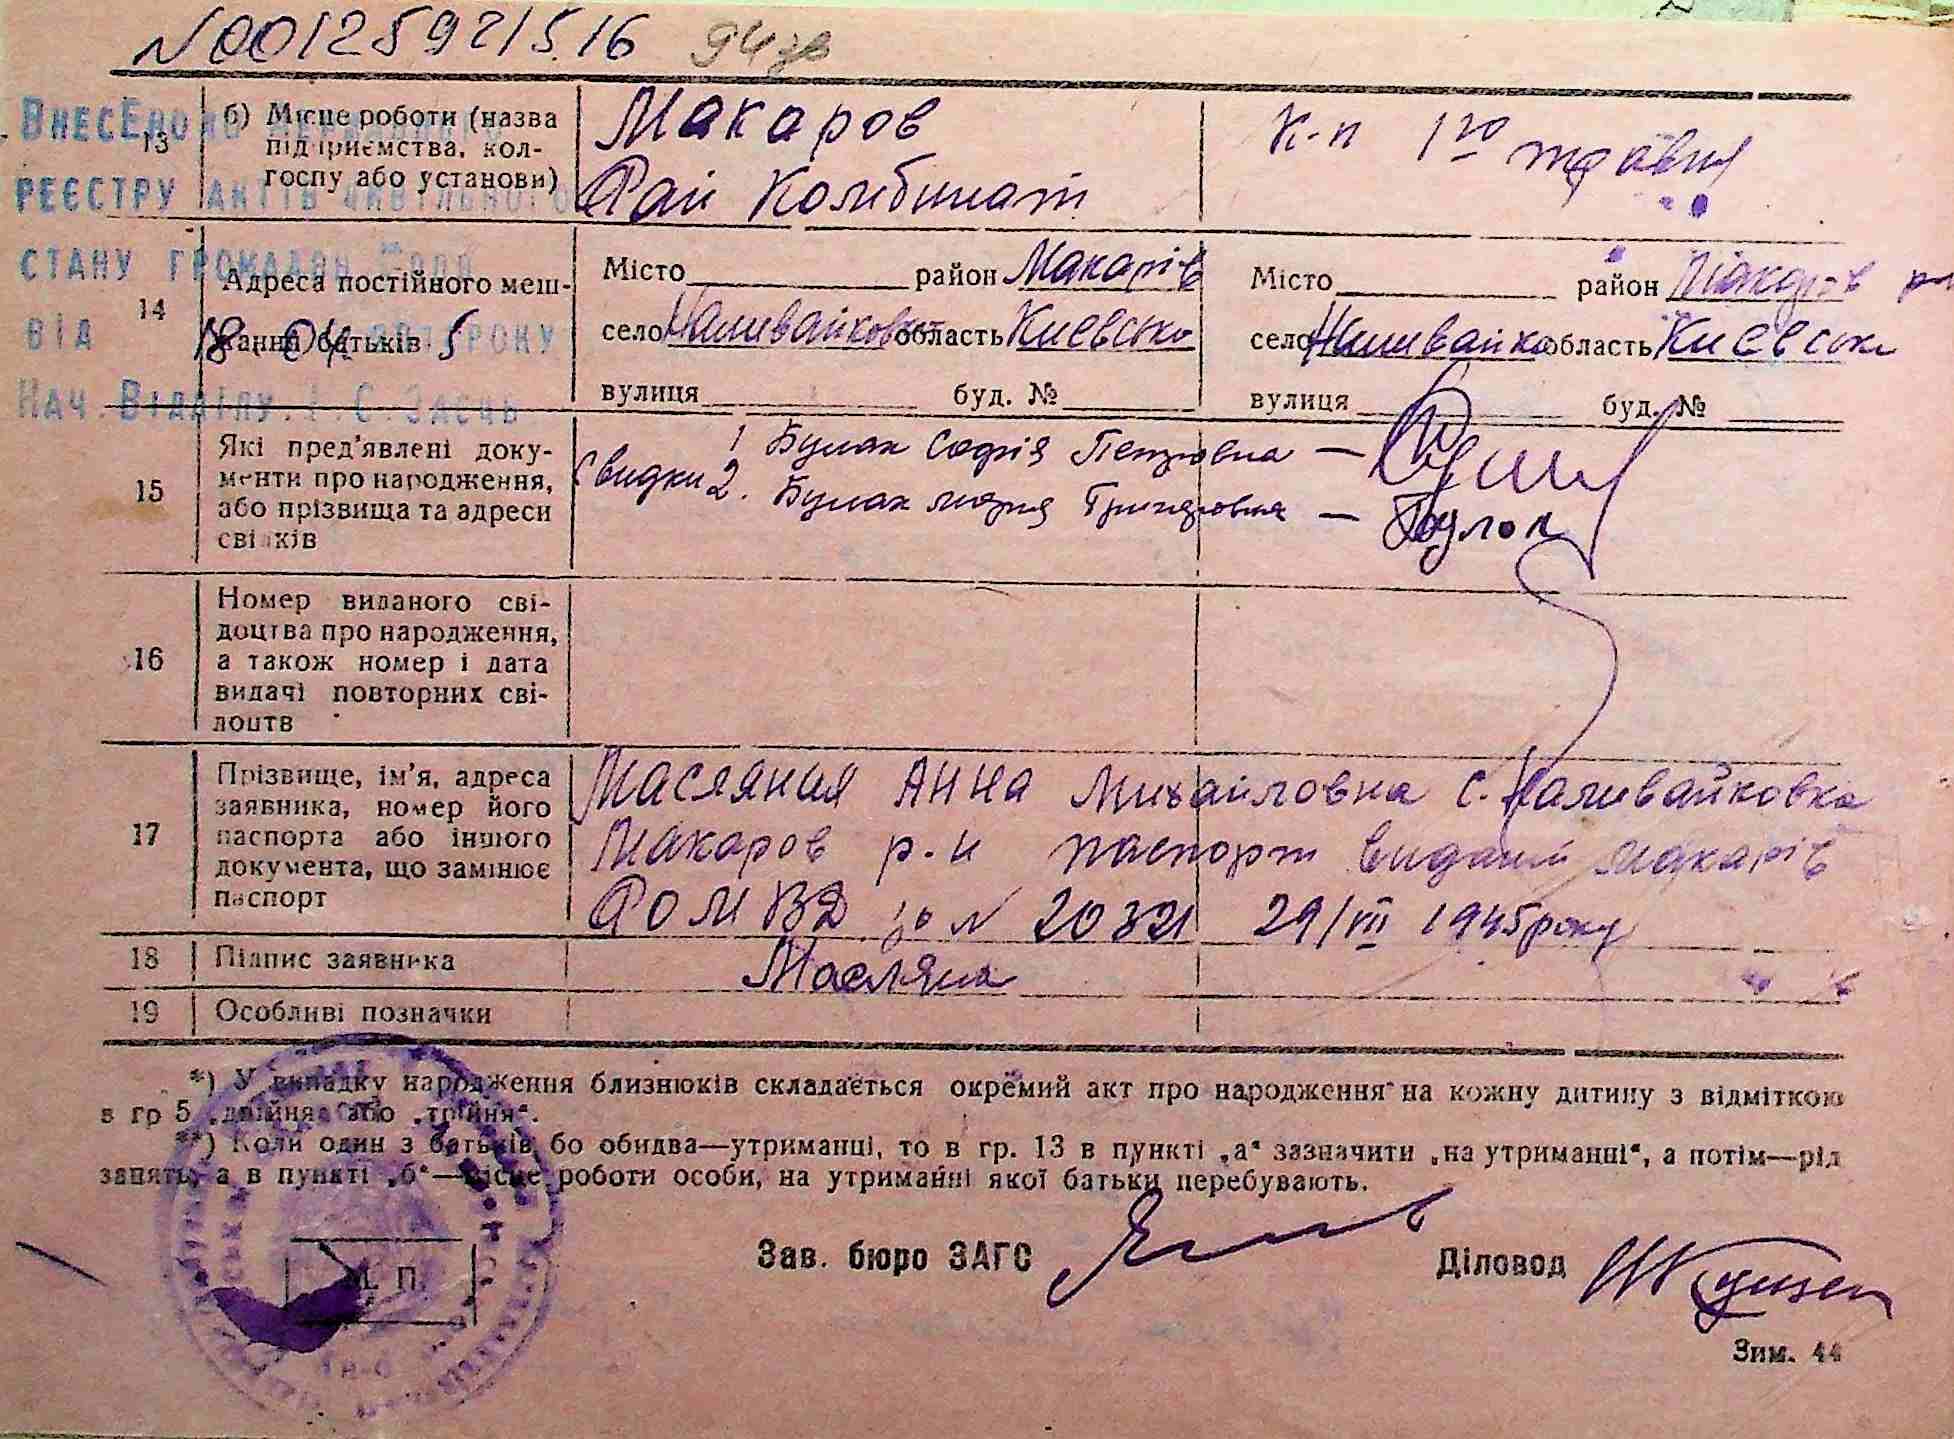 N00125921516 94зв
ВНЕСЕНО ДО ДЕРЖАВНОГО
РЕЄСТРУ АКТІВ ЦИВІЛЬНОГО
СТАНУ ГРОМАДЯН
ВІД 18. 04 РОКУ
НАЧ. ВІДДІЛУ І. С. ЗАЄЦЬ
13 б) Місце роботи (назва підприємства, колгоспу або установи)
Макаров
Рай Комбинат
К-п 1го травня
14 Адреса постійного мешкання батьків
Місто район Макарів
село Наливайковка область Киевсько
вулиця буд. №
Місто район Макаров р-н
село Наливайко область Киевськ
вулиця буд. №
15 Які пред'явлені документи про народження, або прізвища та адреси свідків
Свидки 1 Булах Софія Петровна —
2. Булах Мария Григоровна —
16 Номер виданого свідоцтва про народження, а також номер і дата видачі повторних свідоцтв
17 Прізвище, ім'я, адреса заявника, номер його паспорта або іншого документа, що замінює паспорт
Масляная Анна Михайловна с. Наливайковка
Макаров р-н паспорт виданий Макарів
РО МВД за N 29/VIII 1945 року
18 Підпис заявника
Масляна
19 Особливі позначки
*) У випадку народження близнюків складається окремий акт про народження на кожну дитину з відміткою
в гр 5 „двійня“ або „трійня“.
**) Коли один з батьків бо обидва—утриманці, то в гр. 13 в пункті „а“ зазначити „на утриманні“, а потім—рід
занять, а в пункті „б“—місце роботи особи, на утриманні якої батьки перебувають.
Зав. бюро ЗАГС
Діловод
М. П.
Зим. 44